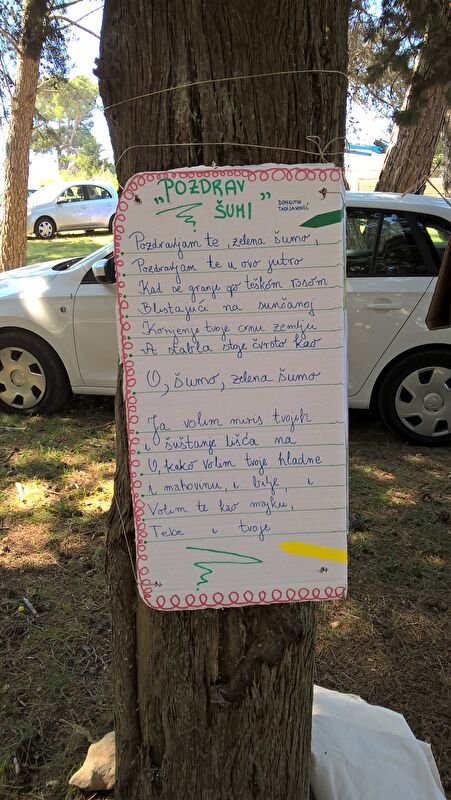 „POZDRAV
ŠUMI"
DRAGUTIN
TADIJANOVIĆ
Pozdravljam te, zelena šumo,
Pozdravljam te u ovo jutro
Kad se granje pod teškom rosom
Blistajući na sunčanoj
Korijenje tvoje crnu zemlju
A stabla stoje čvrsto kao
O, šumo, zelena šumo
Ja volim miris tvojih
i šuštanje lišća na
O, kako volim tvoje hladne
i mahovinu, i bilje, i
Volim te kao majku,
Tebe i tvoje